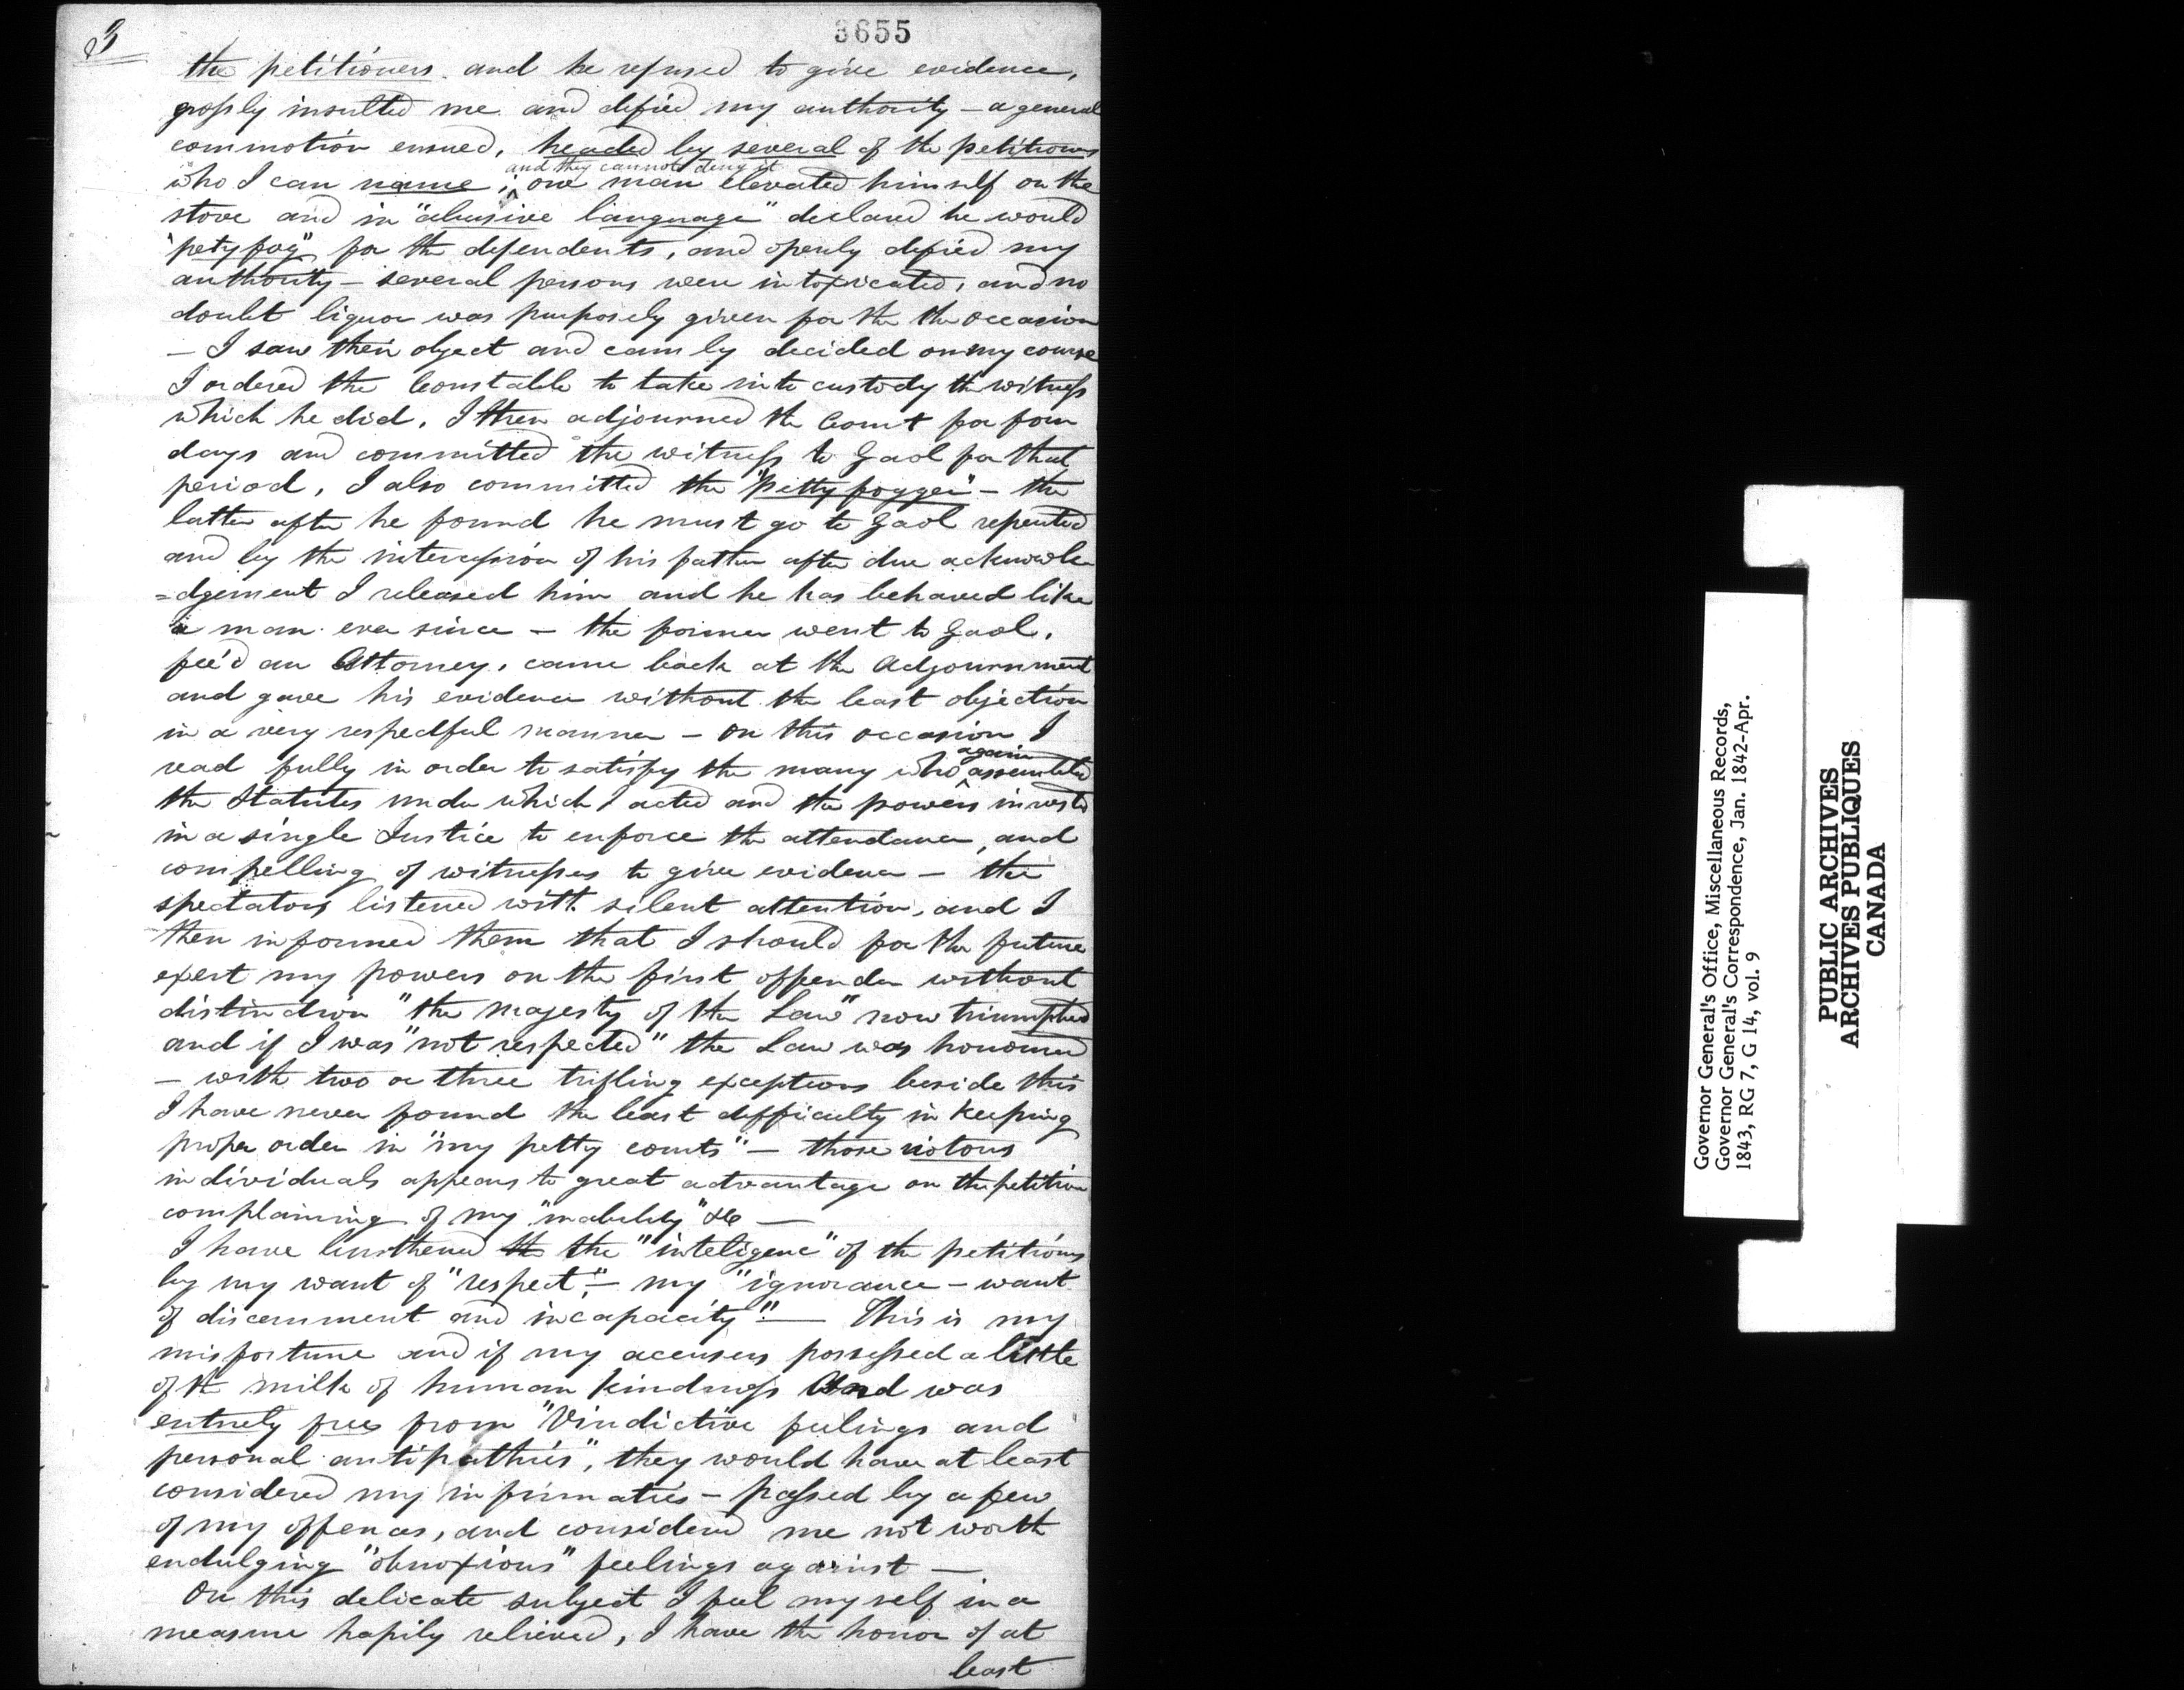 3
3655
the petitioners and he refused to give evidence,
grossly insulted me and defied my authority – a general
commotion ensued, headed by several of the petitioners
and they cannot deny it
who I can name; one man elevated himself on the
stove and in "abusive language" declared he would
"petyfog" for the defendents, and openly defied my
authority – several persons were intoxicated, and no
doubt liquor was purposely given for the the occasion
– I saw their object and camly decided on my course
I ordered the Constable to take into custody the witness
which he did. I then adjourned the Court for four
days and committed the witness to Gaol for that
period, I also committed the "Pettyfogger" – the
latter after he found he must go to Gaol repented
and by the intercession of his father after due acknowle
=dgement I released him and he has behaved like
a man ever since – the former went to Gaol,
fee'd an Attorney, came back at the Adjournment
and gave his evidence without the least objection
in a very respectful manner – on this occasion I
again
read fully in order to satisfy the many who assembled
the Statutes under which I acted and the powers invested
in a single Justice to enforce the attendance, and
compelling of witnesses to give evidence – the
spectators listened with silent attention, and I
then informed them that I should for the future
exert my powers on the first offender without
distinction "the majesty of the Law" now triumphed
and if I was "not respected" the Law was honored
– with two or three trifling exceptions beside this
I have never found the least difficulty in keeping
proper order in "my petty courts" – those riotous
individuals appears to great advantage on the petition
complaining of my "inability" &c —
I have the "inteligence" of the petitioners
by my want of "respect," – my "ignorance – want
of discernment and incapacity". — This is my
misfortune and if my accusers possessed a little
of the milk of human kindness And was
entirely free from "Vindictive feelings and
personal antipathies", they would have at least
considered my infirmaties – passed by a few
of my offences, and considered me not worth
endulging "obnoxious" feelings against —
On this delicate subject I feel myself in a
measure hapily relieved, I have the honor of at
least
Governor General's Office, Miscellaneous Records,
Governor General's Correspondence, Jan. 1842-Apr.
1843, RG 7, G 14, vol. 9
PUBLIC ARCHIVES
ARCHIVES PUBLIQUES
CANADA